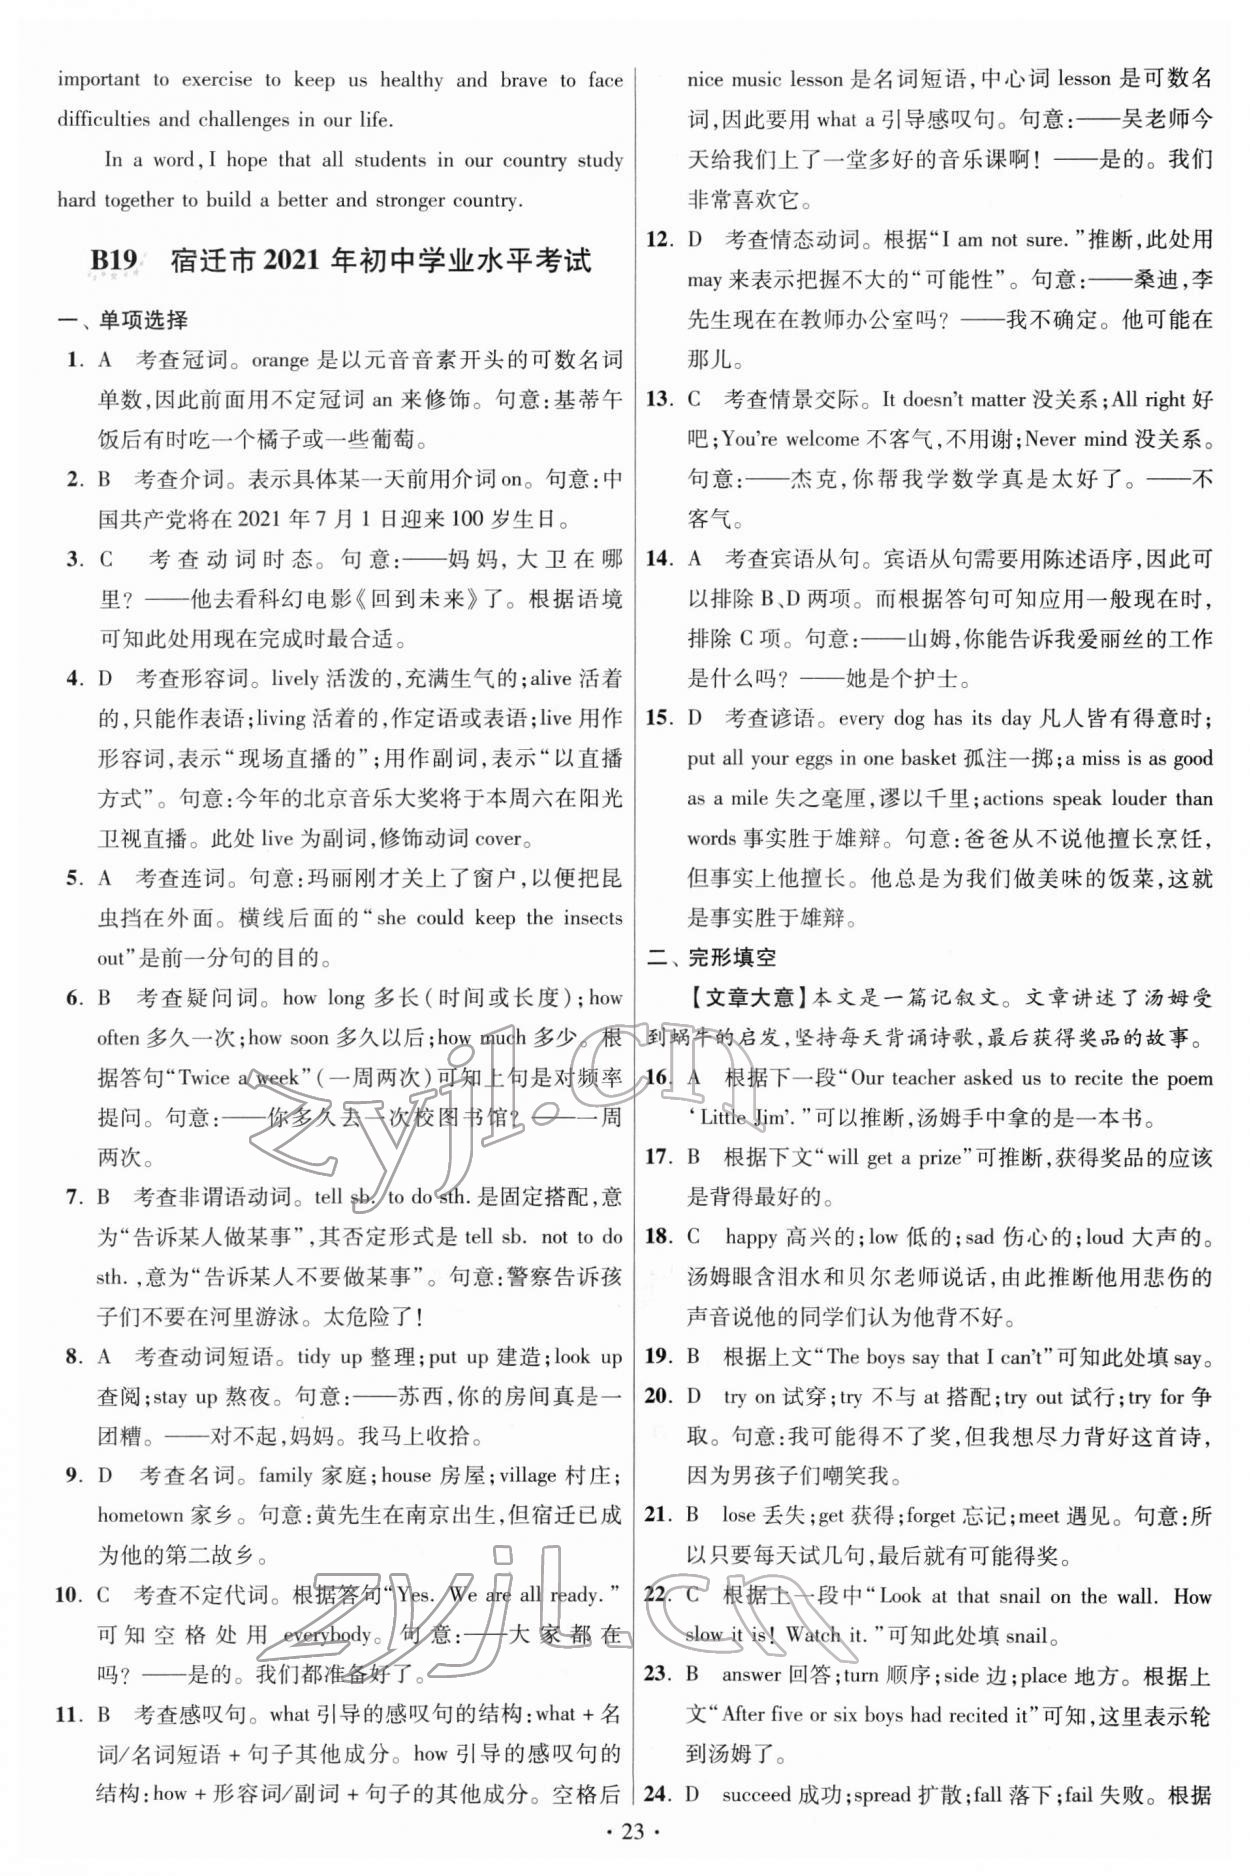 important to exercise to keep us healthy and brave to face
difficulties and challenges in our life.
In a word, I hope that all students in our country study
hard together to build a better and stronger country.
B19 宿迁市 2021 年初中学业水平考试
一、单项选择
1. A 考查冠词。orange 是以元音音素开头的可数名词
单数,因此前面用不定冠词 an 来修饰。句意:基蒂午
饭后有时吃一个橘子或一些葡萄。
2. B 考查介词。表示具体某一天前用介词 on。句意:中
国共产党将在 2021 年 7 月 1 日迎来 100 岁生日。
3. C 考查动词时态。句意:——妈妈,大卫在哪
里? ——他去看科幻电影《回到未来》了。根据语境
可知此处用现在完成时最合适。
4. D 考查形容词。lively 活泼的,充满生气的;alive 活着
的,只能作表语;living 活着的,作定语或表语;live 用作
形容词,表示“现场直播的”;用作副词,表示“以直播
方式”。句意:今年的北京音乐大奖将于本周六在阳光
卫视直播。此处 live 为副词,修饰动词 cover。
5. A 考查连词。句意:玛丽刚才关上了窗户,以便把昆
虫挡在外面。横线后面的“she could keep the insects
out”是前一分句的目的。
6. B 考查疑问词。how long 多长(时间或长度);how
often 多久一次;how soon 多久以后;how much 多少。根
据答句“Twice a week”(一周两次)可知上句是对频率
提问。句意:——你多久去一次校图书馆? ——一周
两次。
7. B 考查非谓语动词。tell sb. to do sth. 是固定搭配,意
为“告诉某人做某事”,其否定形式是 tell sb. not to do
sth. ,意为“告诉某人不要做某事”。句意:警察告诉孩
子们不要在河里游泳。太危险了!
8. A 考查动词短语。tidy up 整理;put up 建造;look up
查阅;stay up 熬夜。句意:——苏西,你的房间真是一
团糟。——对不起,妈妈。我马上收拾。
9. D 考查名词。family 家庭;house 房屋;village 村庄;
hometown 家乡。句意:黄先生在南京出生,但宿迁已成
为他的第二故乡。
10. C 考查不定代词。根据答句“Yes. We are all ready. ”
可知空格处用 everybody。句意:——大家都在
吗? ——是的。我们都准备好了。
11. B 考查感叹句。what 引导的感叹句的结构:what + 名
词/名词短语 + 句子其他成分。how 引导的感叹句的
结构:how + 形容词/副词 + 句子的其他成分。空格后
nice music lesson 是名词短语,中心词 lesson 是可数名
词,因此要用 what a 引导感叹句。句意:——吴老师今
天给我们上了一堂多好的音乐课啊! ——是的。我们
非常喜欢它。
12. D 考查情态动词。根据“I am not sure. ”推断,此处用
may 来表示把握不大的“可能性”。句意:——桑迪,李
先生现在在教师办公室吗? ——我不确定。他可能在
那儿。
13. C 考查情景交际。It doesn't matter 没关系;All right 好
吧;You're welcome 不客气,不用谢;Never mind 没关系。
句意:——杰克,你帮我学数学真是太好了。——不
客气。
14. A 考查宾语从句。宾语从句需要用陈述语序,因此可
以排除 B、D 两项。而根据答句可知应用一般现在时,
排除 C 项。句意:——山姆,你能告诉我爱丽丝的工作
是什么吗? ——她是个护士。
15. D 考查谚语。every dog has its day 凡人皆有得意时;
put all your eggs in one basket 孤注一掷;a miss is as good
as a mile 失之毫厘,谬以千里;actions speak louder than
words 事实胜于雄辩。句意:爸爸从不说他擅长烹饪,
但事实上他擅长。他总是为我们做美味的饭菜,这就
是事实胜于雄辩。
二、完形填空
【文章大意】本文是一篇记叙文。文章讲述了汤姆受
到蜗牛的启发,坚持每天背诵诗歌,最后获得奖品的故事。
16. A 根据下一段“Our teacher asked us to recite the poem
‘Little Jim’. ”可以推断,汤姆手中拿的是一本书。
17. B 根据下文“will get a prize”可推断,获得奖品的应该
是背得最好的。
18. C happy 高兴的;low 低的;sad 伤心的;loud 大声的。
汤姆眼含泪水和贝尔老师说话,由此推断他用悲伤的
声音说他的同学们认为他背不好。
19. B 根据上文“The boys say that I can't”可知此处填 say。
20. D try on 试穿;try 不与 at 搭配;try out 试行;try for 争
取。句意:我可能得不了奖,但我想尽力背好这首诗,
因为男孩子们嘲笑我。
21. B lose 丢失;get 获得;forget 忘记;meet 遇见。句意:所
以只要每天试几句,最后就有可能得奖。
22. C 根据上一段中“Look at that snail on the wall. How
slow it is! Watch it. ”可知此处填 snail。
23. B answer 回答;turn 顺序;side 边;place 地方。根据上
文“After five or six boys had recited it”可知,这里表示轮
到汤姆了。
24. D succeed 成功;spread 扩散;fall 落下;fail 失败。根据
· 23 ·
zyjl.cn
zyjl.cn